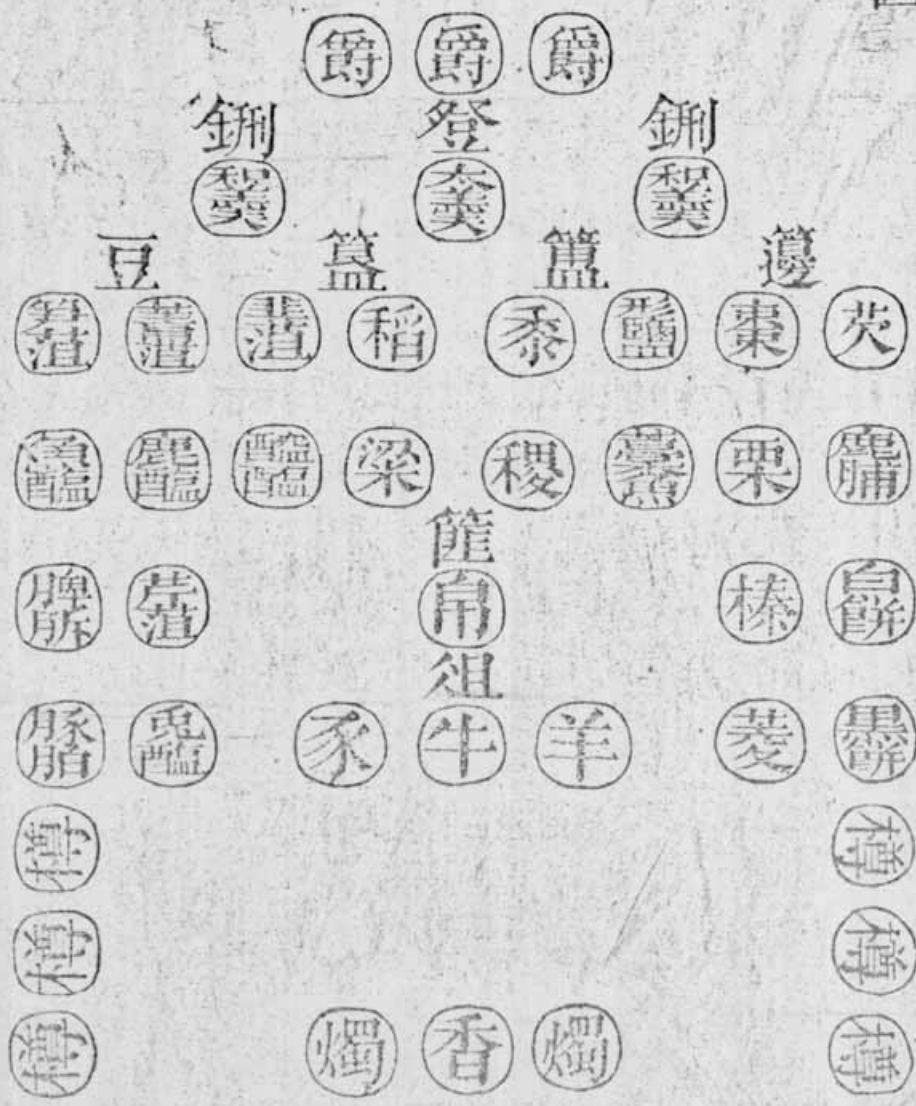 爵 爵 爵
鉶 登 鉶
和羹 太羹 和羹
豆 簋 簠 籩
筍菹 菁菹 韭菹 稻 黍 形鹽 棗 芡
魚醢 鹿醢 醓醢 粱 稷 藁魚 栗 鹿脯
篚
脾肵 芹菹 帛 榛 白餅
俎
豚胉 兎醢 豕 牛 羊 菱 黑餅
樽 樽
樽 樽
樽 燭 香 燭 樽